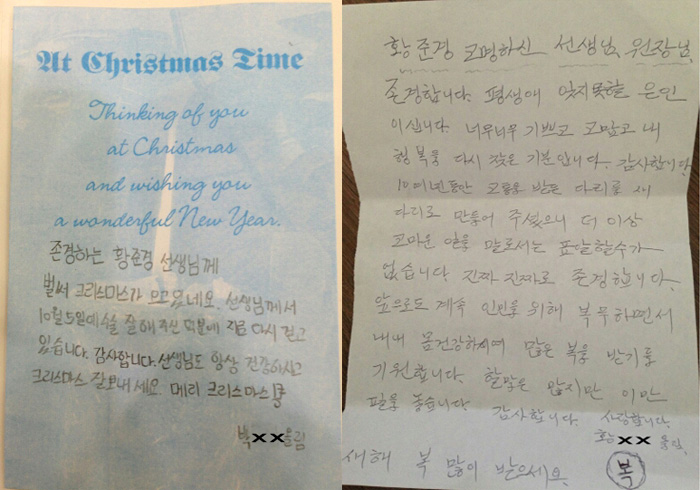 At Christmas Time
Thinking of you
at Christmas
and wishing you
a wonderful New Year.
존경하는 황준경 선생님께
벌써 크리스마스가 오고 있네요. 선생님께서
10월 5일에 수술 잘 해주신 덕분에 지금 다시 걷고
있습니다. 감사합니다. 선생님도 항상 건강하시고
크리스마스 잘 보내세요. 메리 크리스마스
박××올림
황준경 고명하신 선생님, 원장님,
존경합니다. 평생에 잊지못할 은인
이십니다. 너무너무 기쁘고 고맙고 내
행복을 다시 찾은 기분입니다. 감사합니다
10여년동안 고통을 받든 다리를 새
다리로 만들어 주셨으니 더 이상
고마운 일을 말로서는 표달할수가
없습니다. 진짜 진짜로 존경합니다.
앞으로도 계속 인민을 위해 복무하면서
내내 몸건강하시며 많은 복을 받기를
기원합니다. 할말은 많지만 이만
필을 놓습니다. 감사합니다. 사랑합니다.
황×× 올림.
새해 복 많이 받으세요. 복